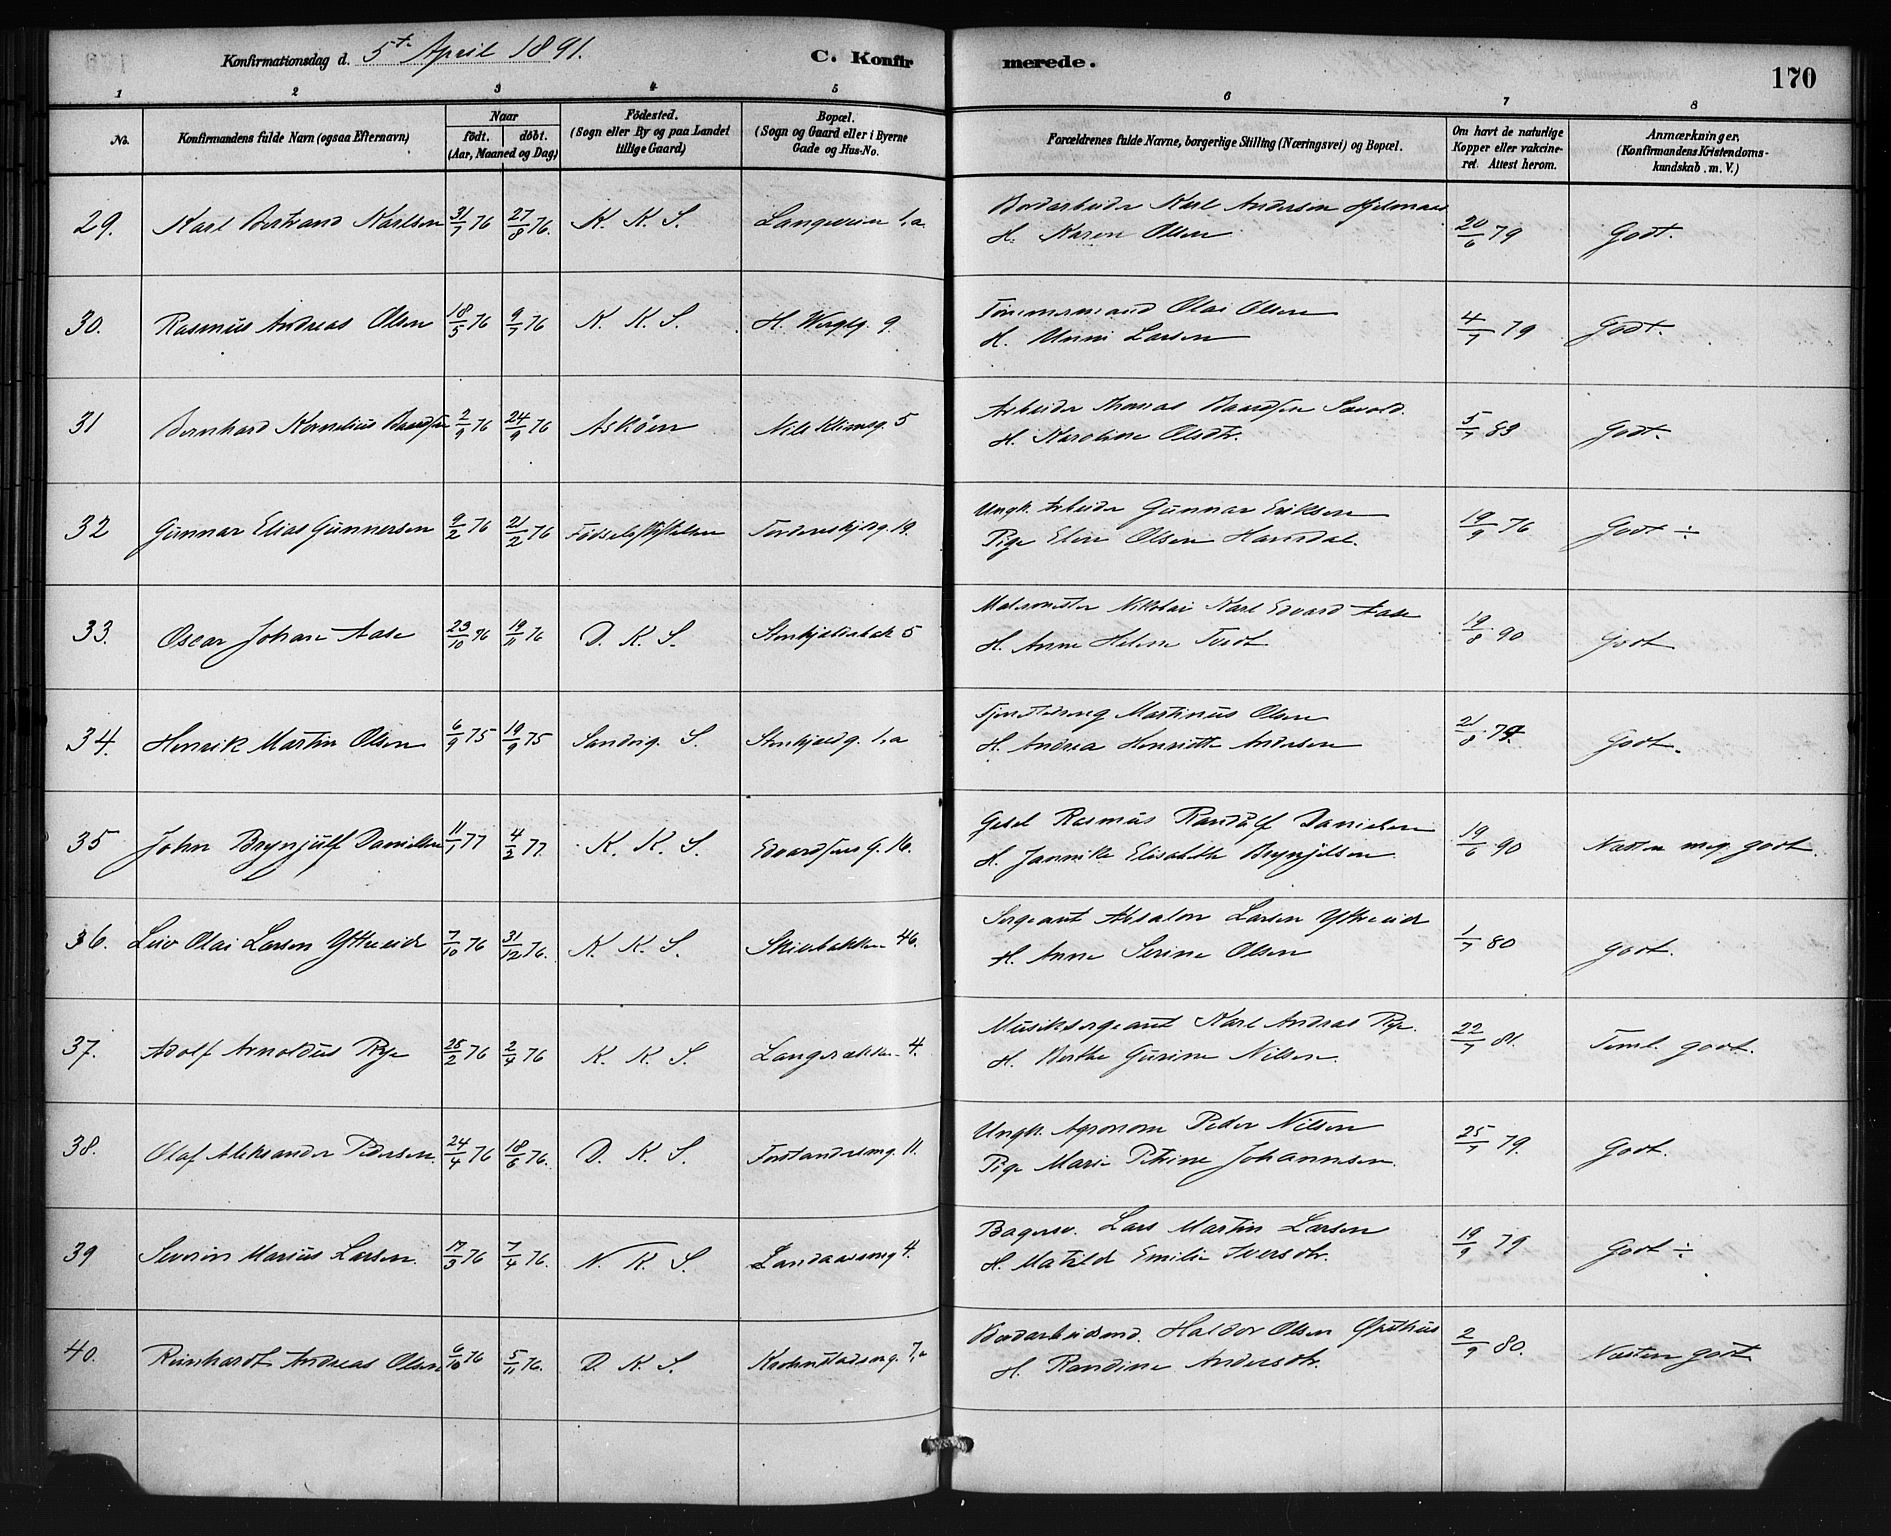 Konfirmationsdag d. 5te April 1891. C. Konfirmerede. 170
1 2 3 4 5 6 7 8
No. Konfirmandens fulde Navn (ogsaa Efternavn) Naar født. døbt. (Aar, Maaned og Dag) Fødested. (Sogn eller By og paa Landet tillige Gaard) Bopæl. (Sogn og Gaard eller i Byerne Gade og Hus-No. Forældrenes fulde Navne, borgerlige Stilling (Næringsvei) og Bopæl. Om havt de naturlige Kopper eller vakcineret. Attest herom. Anmærkninger, (Konfirmandens Kristendomskundskab . m. V.)
29. Karl Bertrand Karlsen 31/7 76 27/8 76. K. K. S. Langeveien 1,a Bordarbeider Karl Andersen Hjelmaas 20/6 79 Godt.
H. Karen Olsen
30. Rasmus Andreas Olsen 18/5 76 9/7 76 K. K. S. H. Wergg. 9. Tømmermand Olai Olsen 4/7 79 Godt.
H. Unni Larsen
31 Bernhard Kornelius Baardsen 2/9 76 24/9 76 Askøen Nils Klimsg. 5 Arbeider Thomas Baardsen 5/7 83 Godt.
H. Karoline Olsdtr.
32 Gunnar Elias Gunnersen 9/2 76 21/2 76 Fødselsstiftelsen Tordenskjoldsg. 19. Ungk. Arbeider Gunnar Eriksen 19/9 76 Godt ÷
Pige Eline Olsen Hamsdal.
33. Oscar Johan Aase 23/10 76 19/11 76 D. K. S. 5 Malermester Nikolai Karl Edvard Aase 19/8 90 Godt
H. Anne Helene Tvedt
34. Henrik Martin Olsen 6/9 75 19/9 75 Sandvig. S. Stenkjeldg. 1,a Martinus Olsen 21/8 79. Godt.
H. Andrea Henriette Andersen
35 John Brynjulf Danielsen 11/1 77 4/2 77. K. K. S. Edvardsens G. 16. Gesel Rasmus Randulf Danielsen 19/6 90 Næsten meg. godt.
H. Jannika Elisabeth Brynjelsen
36. Olai Larsen Ytreeide 7/10 76 31/12 76. K. K. S. Skivebakken 46. Sergeant Absalon Larsen Ytreeide 1/7 80 godt.
H. Anne Serine Olsen
37. Adolf Arnoldus Rye 25/2 76 2/4 76 K. K. S. 4. Musiksergeant Karl Andreas Rye. 22/7 81. Teml. godt.
H. Berthe Gurine Nilsen.
38. Olaf Aleksander Pedersen. 24/4 76 18/6 76. D. K. S. Forstandersmg. 11. Ungk. Agronom Peder Nilsen 25/7 79. Godt.
Pige Marie Petrine Johannesen.
39 Severin Marius Larsen. 17/3 76 7/4 76. N. K. S. Landaassmg 4. Bagersv. Lars Martin Larsen 19/9 79 Godt ÷
H. Matilde Emilie Iversdtr.
40. Reinhardt Andreas Olsen 6/10 76 5/11 76. D. K. S. 7,a Haldor Olsen 2/9 80. Næsten godt
H. Randine Andersdtr.